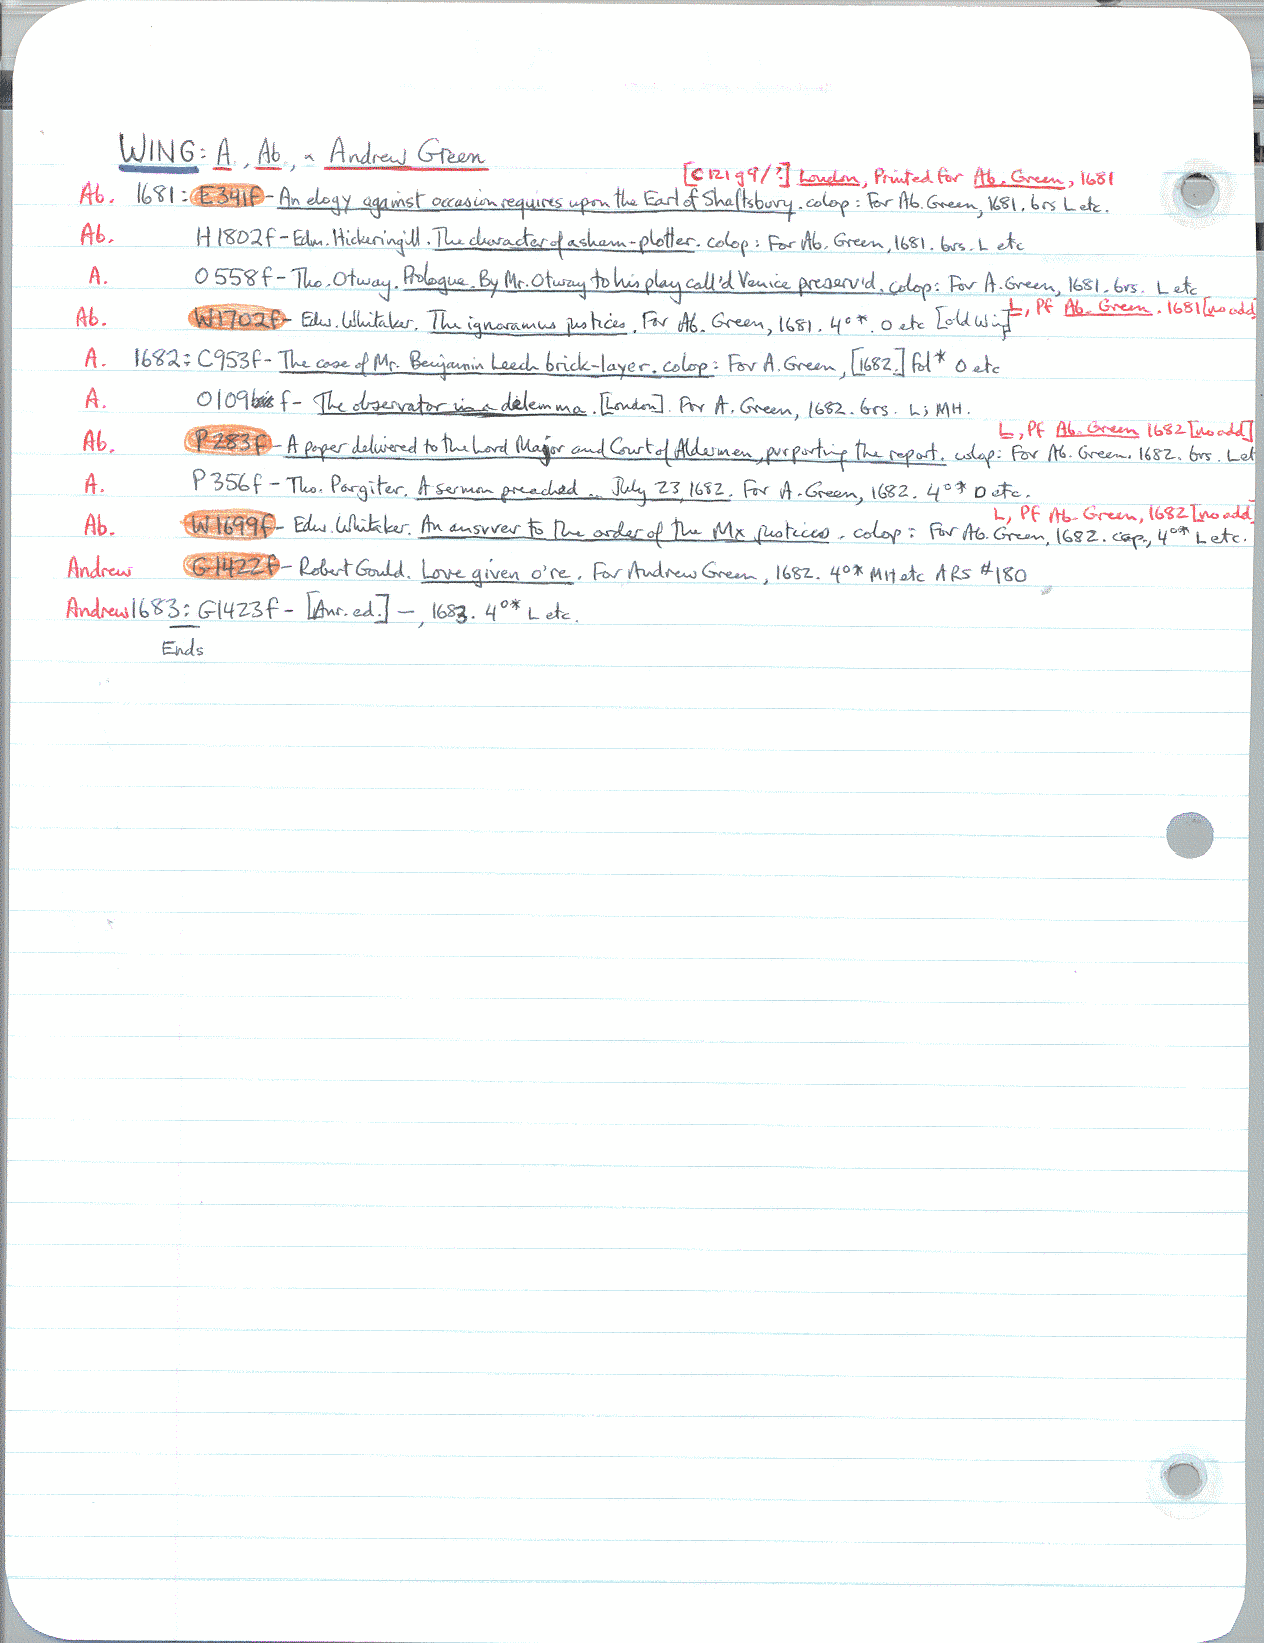 WING: A., Ab., Andrew Green
[C121g9/?] London, Printed for Ab. Green, 1681
Ab. 1681: E341f - An elogy against occasion requires upon the Earl of Shaftsbury. colop: For Ab. Green, 1681. brs L etc.
Ab. H1802f - Edm. Hickeringill. The character of asham-plotter. colop: For Ab. Green, 1681. brs. L etc
A. O558f - Tho. Otway. Prologue. By Mr. Otway to his play call'd Venice preserv'd. colop: For A. Green, 1681. brs. L etc
L, Pf Ab. Green. 1681 [no add]
Ab. W1702f - Edw. Whitaker. The ignoramus justices. For Ab. Green, 1681. 4º*. O etc [old Wing]
A. 1682: C953f - The case of Mr. Benjamin Leech brick-layer. colop: For A. Green, [1682.] fol* O etc
A. O109 f - The observator in a dilemma. [London]. For A. Green, 1682. brs. L; MH.
L, Pf Ab. Green 1682 [no add]
Ab. P283f - A paper delivered to the Lord Major and Court of Aldermen, purporting the report. colop: For Ab. Green. 1682. brs. L et
A. P356f - Tho. Pargiter. A sermon preached .. July 23, 1682. For A. Green, 1682. 4º* D etc.
L, Pf Ab. Green, 1682 [no add]
Ab. W1699f - Edw. Whitaker. An answer to the order of the Mx justices. colop: For Ab. Green, 1682. cap., 4º* L etc.
Andrew G1422f - Robert Gould. Love given o're. For Andrew Green, 1682. 4º* MH etc ARS #180
Andrew 1683: G1423f - [Anr. ed.] —, 1683. 4º* L etc.
Ends